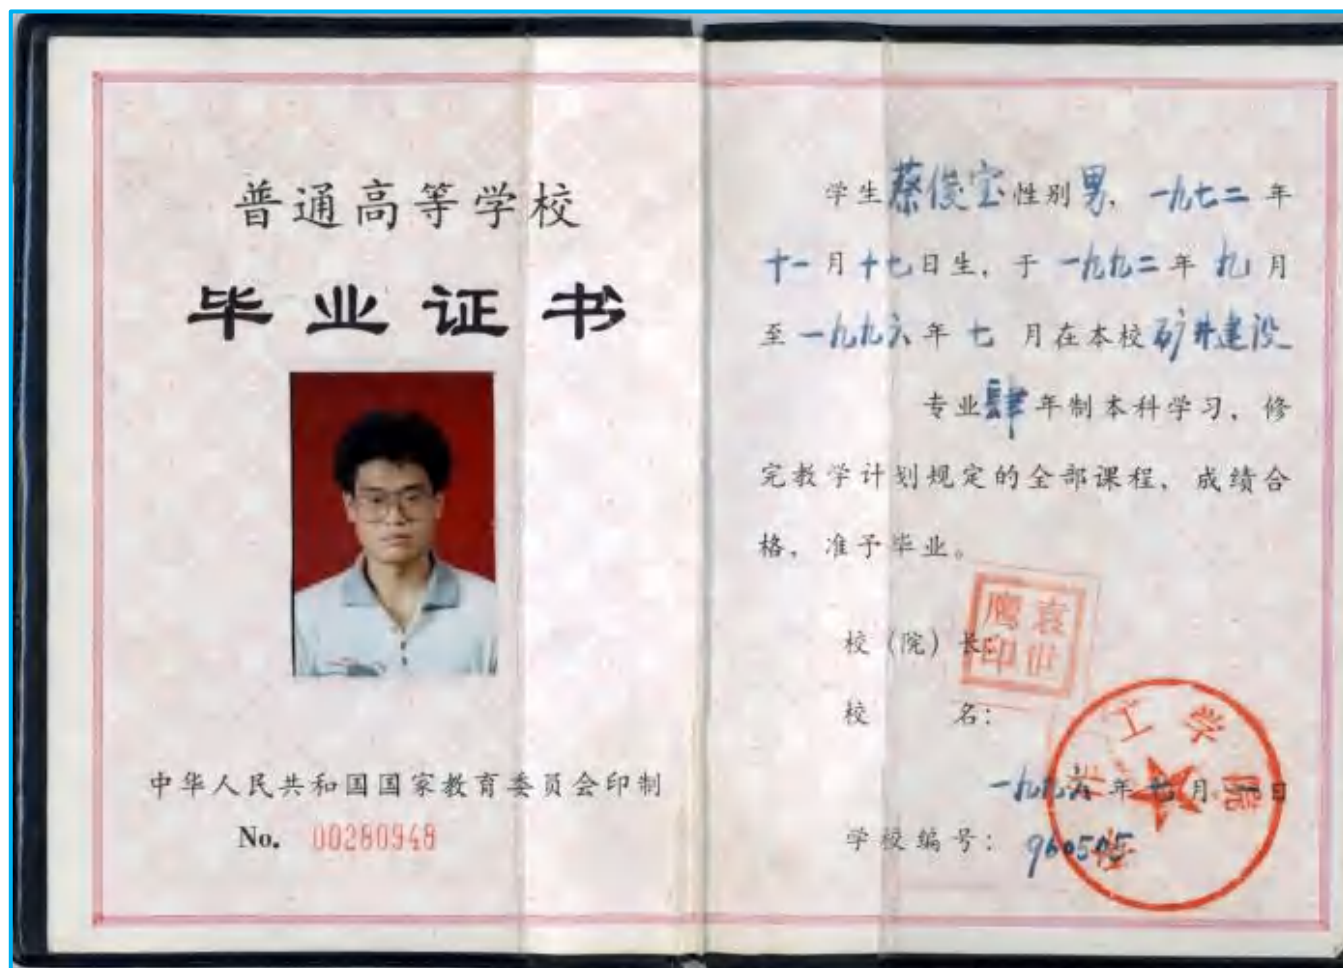 普通高等学校
毕业证书
中华人民共和国国家教育委员会印制
No. 00280948
学生蔡俊宝性别男，一九七二年
十一月十七日生，于一九九二年九月
至一九九六年七月在本校矿井建设
专业肆年制本科学习，修
完教学计划规定的全部课程，成绩合
格，准予毕业。
校（院）长：
袁世鹰印
校 名：
工学院
一九九六年七月 日
学校编号：960545